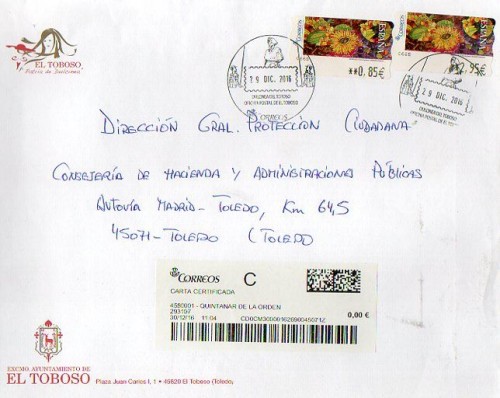 EL TOBOSO
Patria de Dulcinea
CORREOS
ESPAÑA
**0,85€
29 DIC. 2016
CORREOS
ESPAÑA
95€
29 DIC. 2016
DIRECCIÓN GRAL. PROTECCIÓN CIUDADANA
CONSEJERÍA DE HACIENDA Y ADMINISTRACIONES PÚBLICAS
AUTOVÍA MADRID - TOLEDO, Km 64,5
45071 - TOLEDO (TOLEDO
CORREOS C
CARTA CERTIFICADA
4580001 - QUINTANAR DE LA ORDEN
293107
30/12/16 11:04 0,00 €
EXCMO. AYUNTAMIENTO DE
EL TOBOSO Plaza Juan Carlos I, 1 • 45820 El Toboso (Toledo)